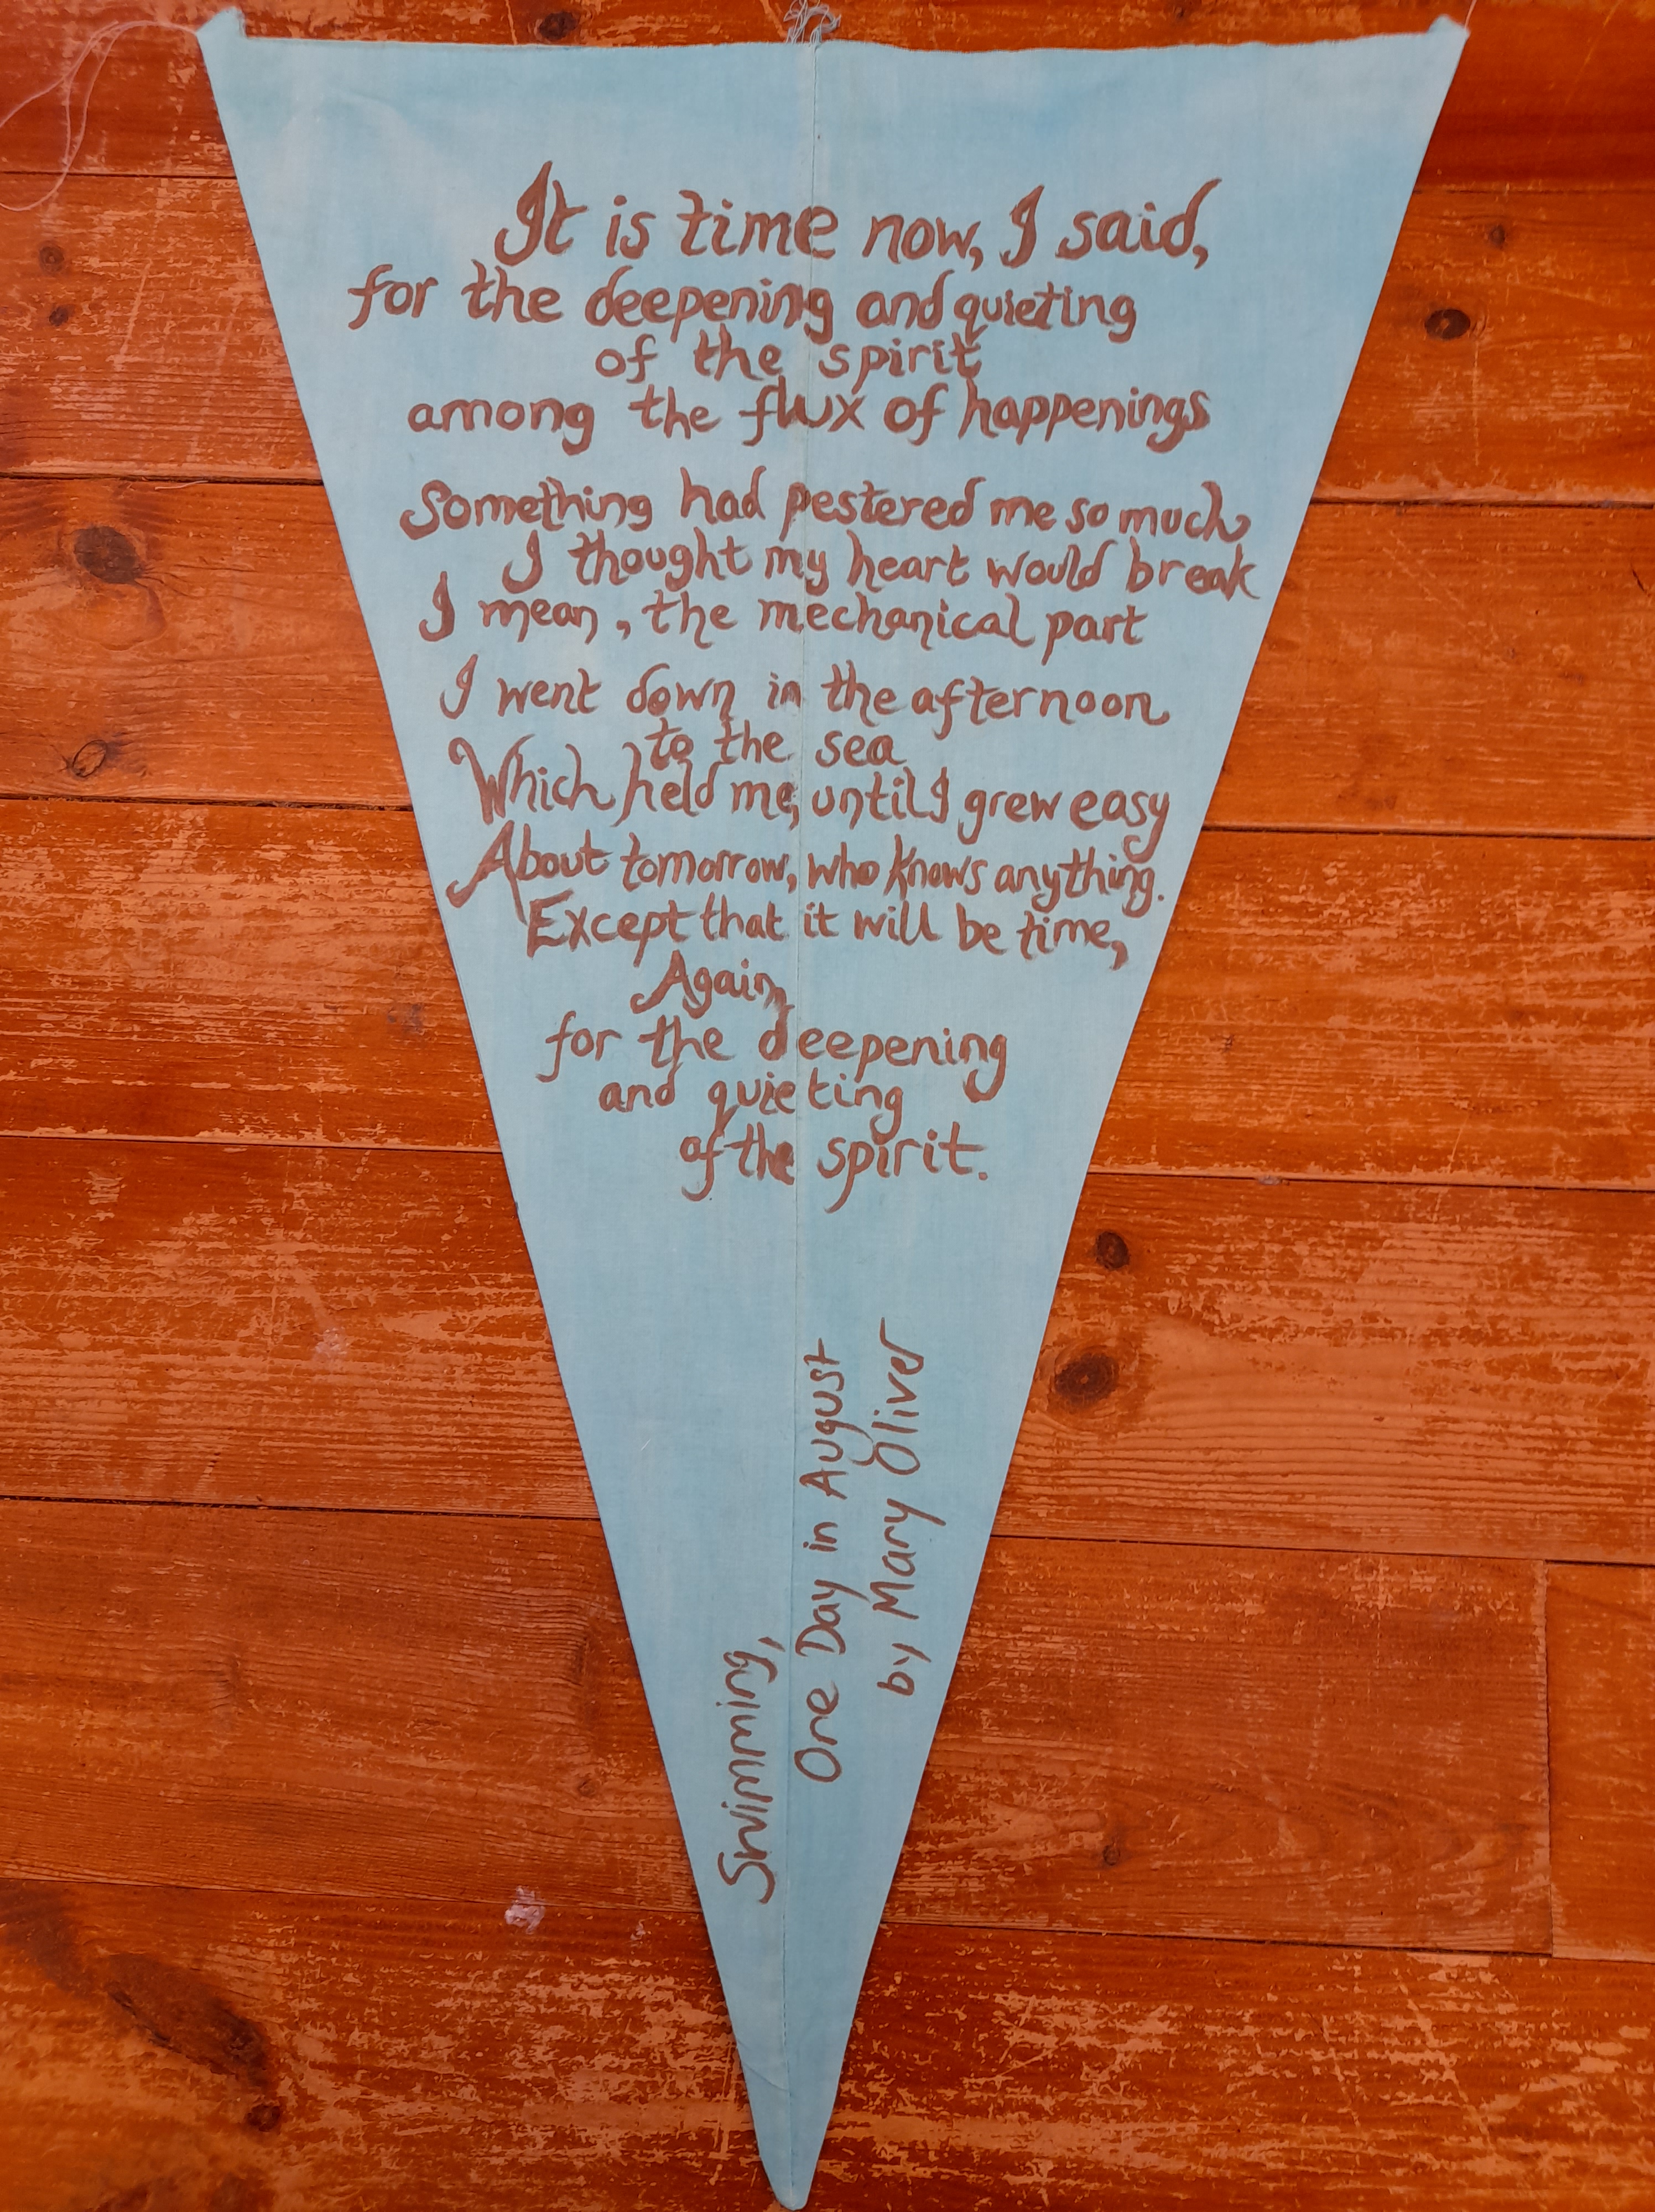 It is time now, I said,
for the deepening and quieting
of the spirit
among the flux of happenings
Something had pestered me so much
I thought my heart would break
I mean, the mechanical part
I went down in the afternoon
to the sea
Which held me, until I grew easy
About tomorrow, who knows anything.
Except that it will be time,
Again,
for the deepening
and quieting
of the spirit.
Swimming,
One Day in August
by Mary Oliver